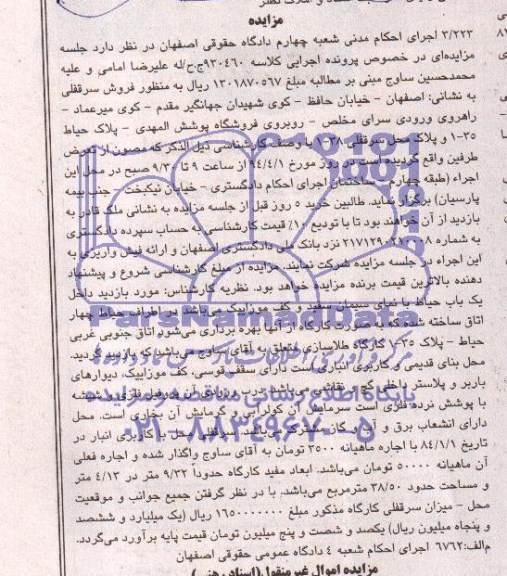 مزایده
۳/۲۲۳ اجرای احکام مدنی شعبه چهارم دادگاه حقوقی اصفهان در نظر دارد جلسه
مزایده‌ای در خصوص پرونده اجرایی کلاسه ۹۳۰۴۶۰ج‌ح/له علیرضا امامی و علیه
محمدحسین ساوج مبنی بر مطالبه مبلغ ۱۳۰۱۸۷۰۵۶۷ ریال به منظور فروش سرقفلی
به نشانی: اصفهان - خیابان حافظ - کوی شهیدان جهانگیر مقدم - کوی میرعماد -
راهروی ورودی سرای مخلص - روبروی فروشگاه پوشش المهدی - پلاک حیاط
۱-۳۵ و پلاک محل سرقفلی ۱-۳۸ با وصف کارشناسی ذیل الذکر که مصون از تعرض
طرفین واقع گردیده است در روز مورخ ۹۴/۴/۱ از ساعت ۹ تا ۹/۳۰ صبح در محل این
اجراء (طبقه چهارم ساختمان اجرای احکام دادگستری - خیابان نیکبخت - جنب بیمه
پارسیان) برگزار نماید. طالبین خرید ۵ روز قبل از جلسه مزایده به نشانی ملک قادر به
بازدید از آن خواهند بود تا با تودیع ۱۰٪ قیمت کارشناسی به حساب سپرده دادگستری
به شماره ۲۱۷۱۲۹۰۲۱۰۰۰۸ نزد بانک ملی دادگستری اصفهان و ارائه فیش واریزی به
این اجراء در جلسه مزایده شرکت نمایند. مزایده از مبلغ کارشناسی شروع و پیشنهاد
دهنده بالاترین قیمت برنده مزایده خواهد بود. نظریه کارشناس: مورد بازدید داخل
یک باب حیاط با نمای سیمان سفید و کف موزاییک می‌باشد در اطراف حیاط چهار
اتاق ساخته شده که به صورت کارگاه از آنها بهره برداری می‌شود اتاق جنوبی غربی
حیاط - پلاک ۱-۳۵ کارگاه طلاسازی متعلق به آقای ساوج می‌باشد که بازدید گردید.
محل بنای قدیمی و کاربری انباری است دارای سقف قوسی، کف موزاییک، دیوارهای
باربر و پلاستر داخلی گچ و نقاشی می‌باشد. درب ورودی آن پروفیل فلزی و شیشه
با پوشش نرده فلزی است سرمایش آن کولرآبی و گرمایش آن بخاری است. محل
دارای انشعاب برق و آب و گاز مشترک می‌باشد. سرقفلی محل با کاربری انبار در
تاریخ ۸۴/۱/۱ با اجاره ماهیانه ۳۵۰۰ تومان به آقای ساوج واگذار شده و اجاره فعلی
آن ماهیانه ۵۰۰۰۰ تومان می‌باشد. ابعاد مفید کارگاه حدوداً ۹/۳۲ متر در ۴/۱۳ متر
و مساحت حدود ۳۸/۵۰ مترمربع می‌باشد. با در نظر گرفتن جمیع جوانب و موقعیت
محل - میزان سرقفلی کارگاه مذکور مبلغ ۱۶۵۰۰۰۰۰۰۰ ریال (یک میلیارد و ششصد
و پنجاه میلیون ریال) یکصد و شصت و پنج میلیون تومان قیمت پایه برآورد می‌گردد.
م‌الف: ۶۷۶۲ اجرای احکام شعبه ۴ دادگاه عمومی حقوقی اصفهان
مزایده اموال غیر منقول (اسناد رهنی)
ParsNamadData
پایگاه اطلاع رسانی مناقصه و مزایده
۰۲۱-۸۸۳۴۹۶۷۰-۵